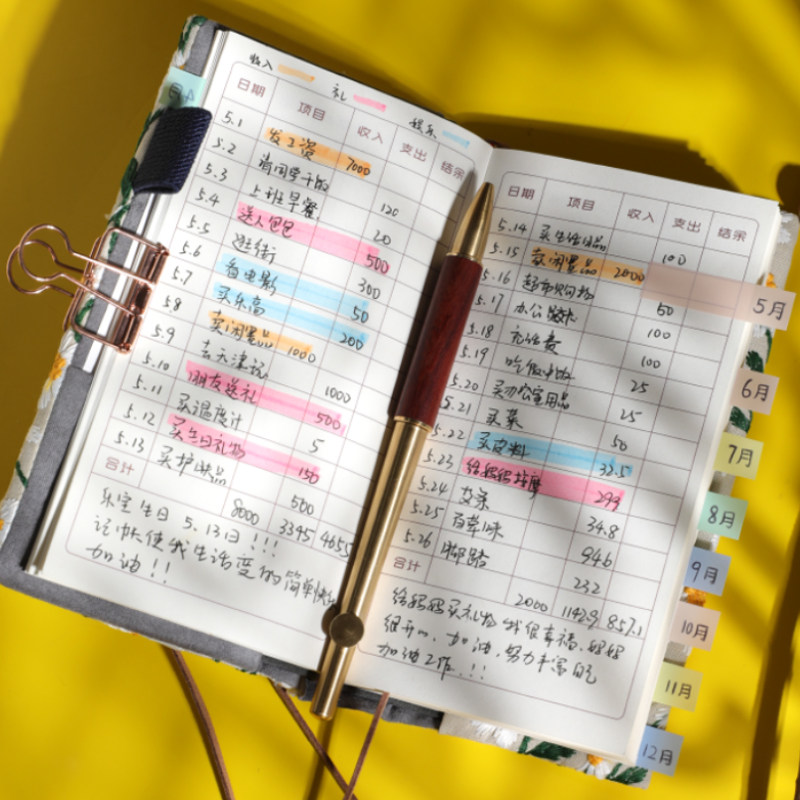 4月
收入 礼 娱乐
日期 项目 收入 支出 结余
5.1 发工资 7000
5.2
5.3 上班早餐 120
5.4 送人包包 20
5.5 逛街 500
5.6 看电影 300
5.7 买乐高 50
5.8 卖闲置品 1000 200
5.9 去天津玩
5.10 朋友送礼 1000
5.11 买温度计 500
5.12 买生日礼物 5
5.13 买护肤品 150
合计 500
8000 3345 4655
乐宝生日 5.13日!!!
记帐使我生活变的简单快乐
加油!!
日期 项目 收入 支出 结余
5.14 买生活用品
5.15 卖闲置品 2000 100
5.16 超市购物
5.17 办公 50
5.18 充话费 100
5.19 吃饭 100
5.20 买办公室用品 25
5.21 买菜 25
5.22 买皮料 50
5.23 给妈妈按摩 32.5
5.24 艾条 299
5.25 百草味 34.8
5.26 94.6
合计 232
2000 1142.9 857.1
给妈妈买礼物 我很幸福,妈妈
很开心,加油,努力丰富自己
加油工作!!!
5月
6月
7月
8月
9月
10月
11月
12月